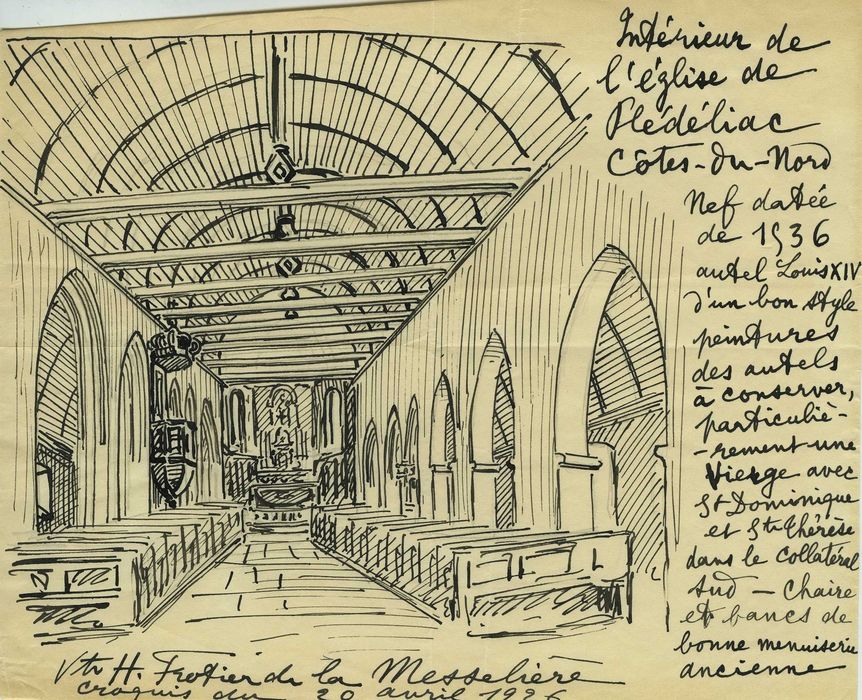 Intérieur de
l'église de
Plédéliac
Côtes-du-Nord
Nef datée
de 1936
autel Louis XIV
d'un bon style
peintures
des autels
à conserver,
particuliè-
-rement une
Vierge avec
St Dominique
et Ste Thérèse
dans le collatéral
sud - Chaire
et bancs de
bonne menuiserie
ancienne
Vte H. Frotier de la Messelière
croquis du 20 avril